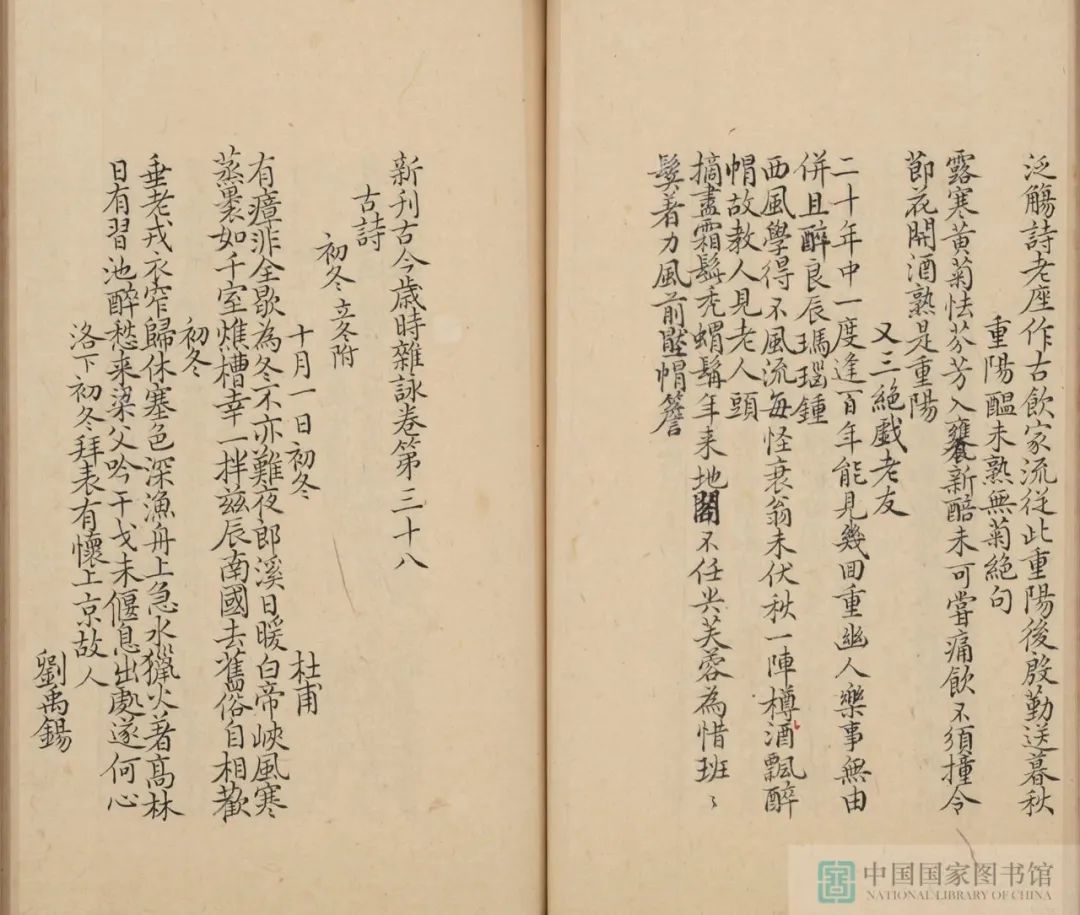 泛觴詩老座作古飲家流從此重陽後殷勤送暮秋
重陽醖未熟無菊絶句
露寒黄菊怯芬芳入甕新醅未可甞痛飲不須撞令
節花開酒熟是重陽
又三絶戲老友
二十年中一度逢百年能見幾囬重幽人樂事無由
併且醉良辰瑪瑙鍾
西風學得不風流每怪衰翁未伏秋一陣樽酒飄醉
帽故教人見老人頭
摘盡霜鬚禿蝟髯年来地閣不任尖芙蓉為惜班〻
鬂著力風前壓帽簷
新刊古今歳時雜詠卷第三十八
古詩
初冬 立冬附
十月一日初冬 杜甫
有瘴非全歇為冬不亦難夜郎溪日暖白帝峽風寒
蒸褁如千室燋糟幸一拌兹辰南國去舊俗自相歡
初冬
垂老戎衣窄歸休塞色深漁舟上急水獵火著髙林
日有習池醉愁来梁父吟干戈未偃息出處遂何心
洛下初冬拜表有懷上京故人
劉禹錫
中国国家图书馆
NATIONAL LIBRARY OF CHINA